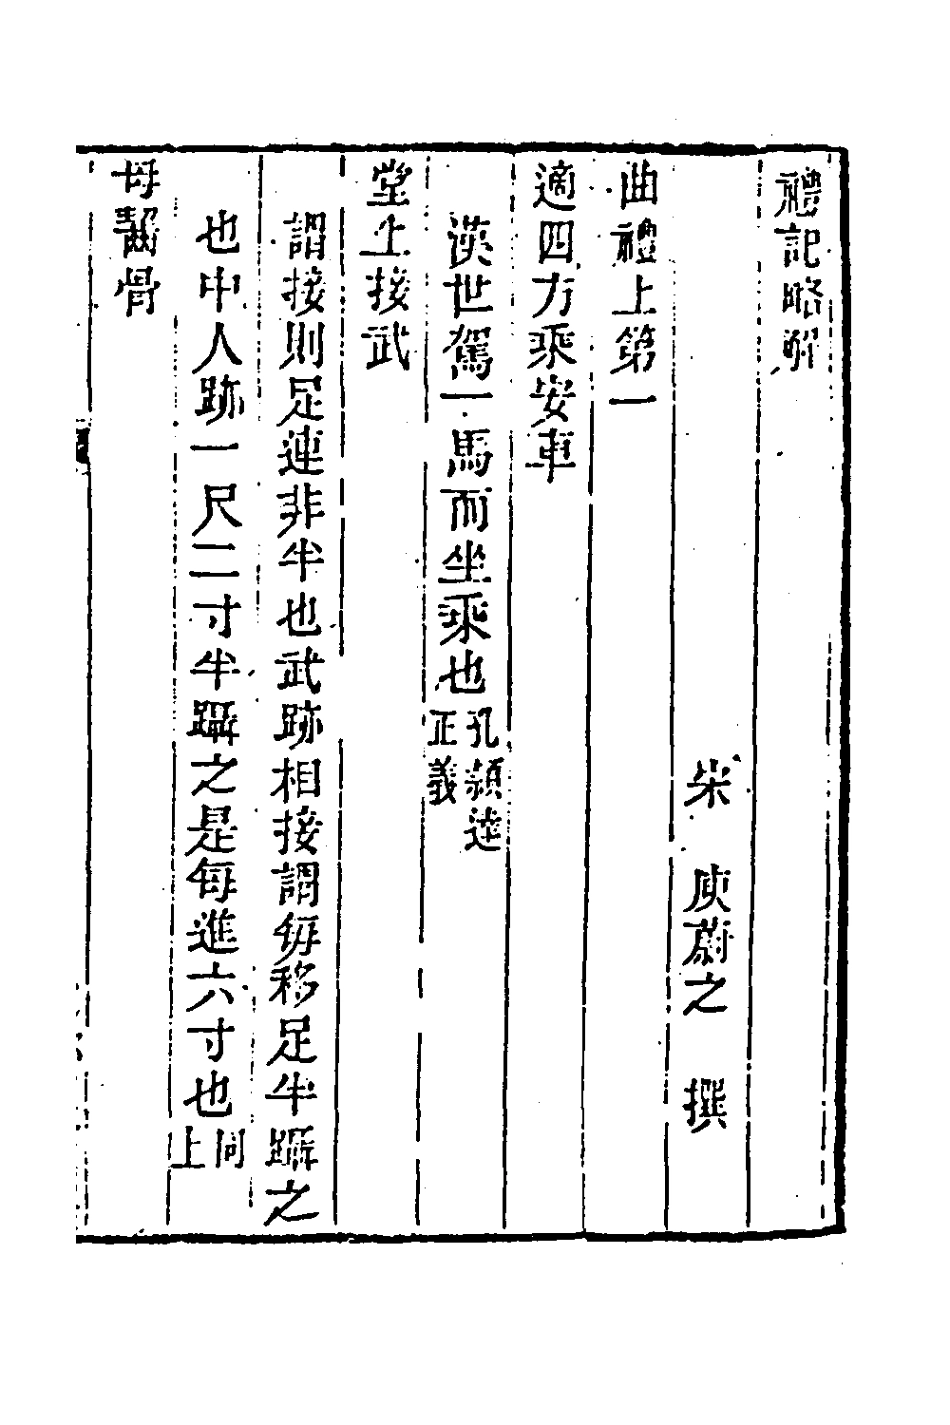 禮記略解
宋　庾蔚之　撰
曲禮上第一
適四方乘安車
漢世駕一馬而坐乘也孔穎達正義
堂上接武
謂接則足連非半也武跡相接謂每移足半躡之
也中人跡一尺二寸半躡之是每進六寸也同上
毋齧骨